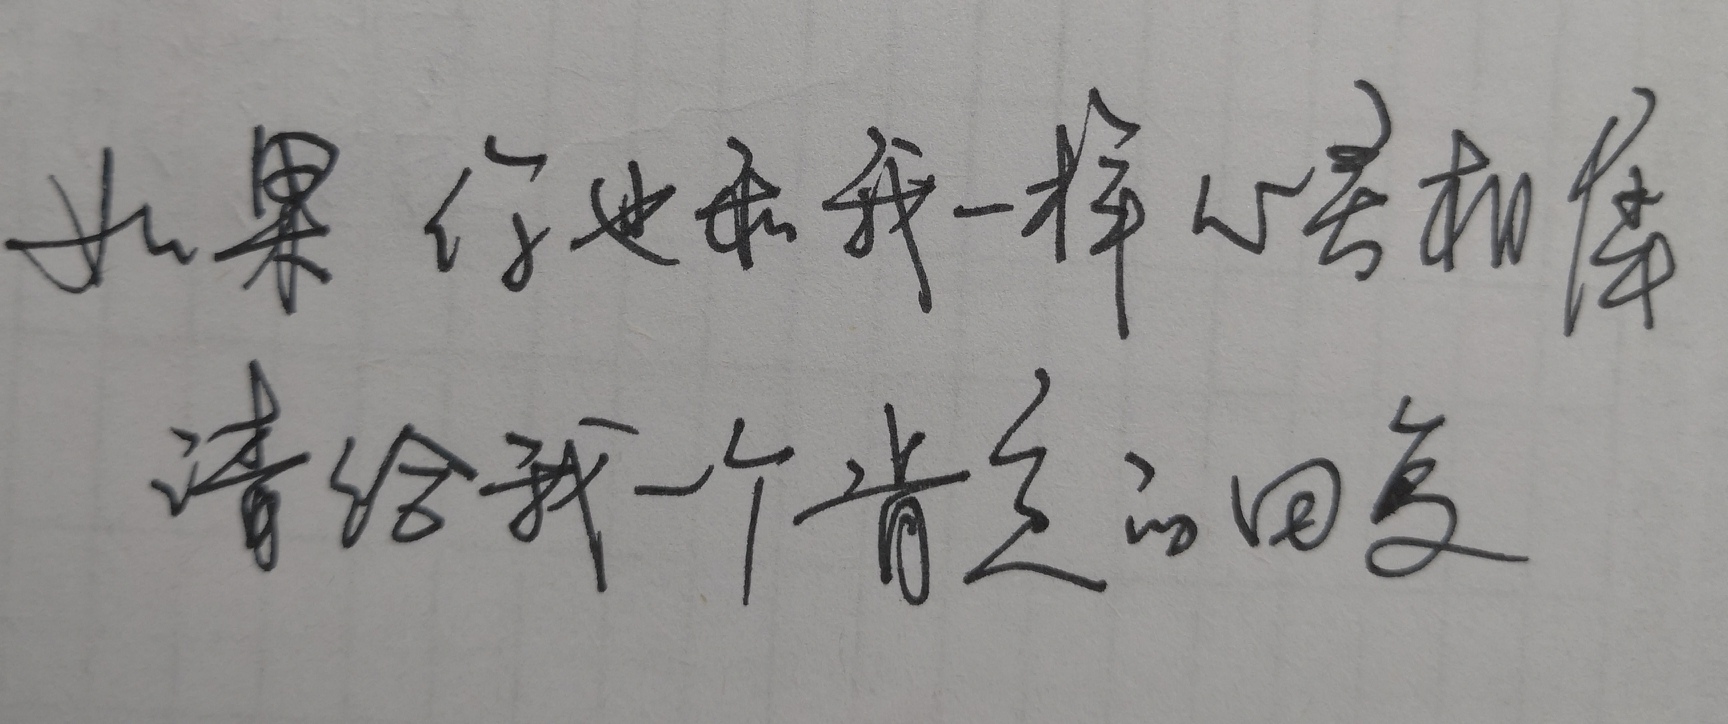 如果你也和我一样心喜相偕
请给我一个肯定的回复